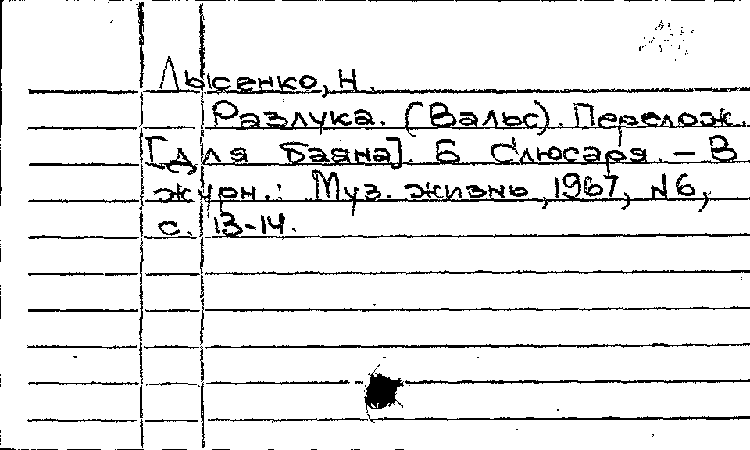 Лысенко, Н.
Разлука. (Вальс). Перелож.
[для баяна]. Б Слюсаря. – В
журн.: Муз. жизнь, 1967, № 6,
с. 13-14.